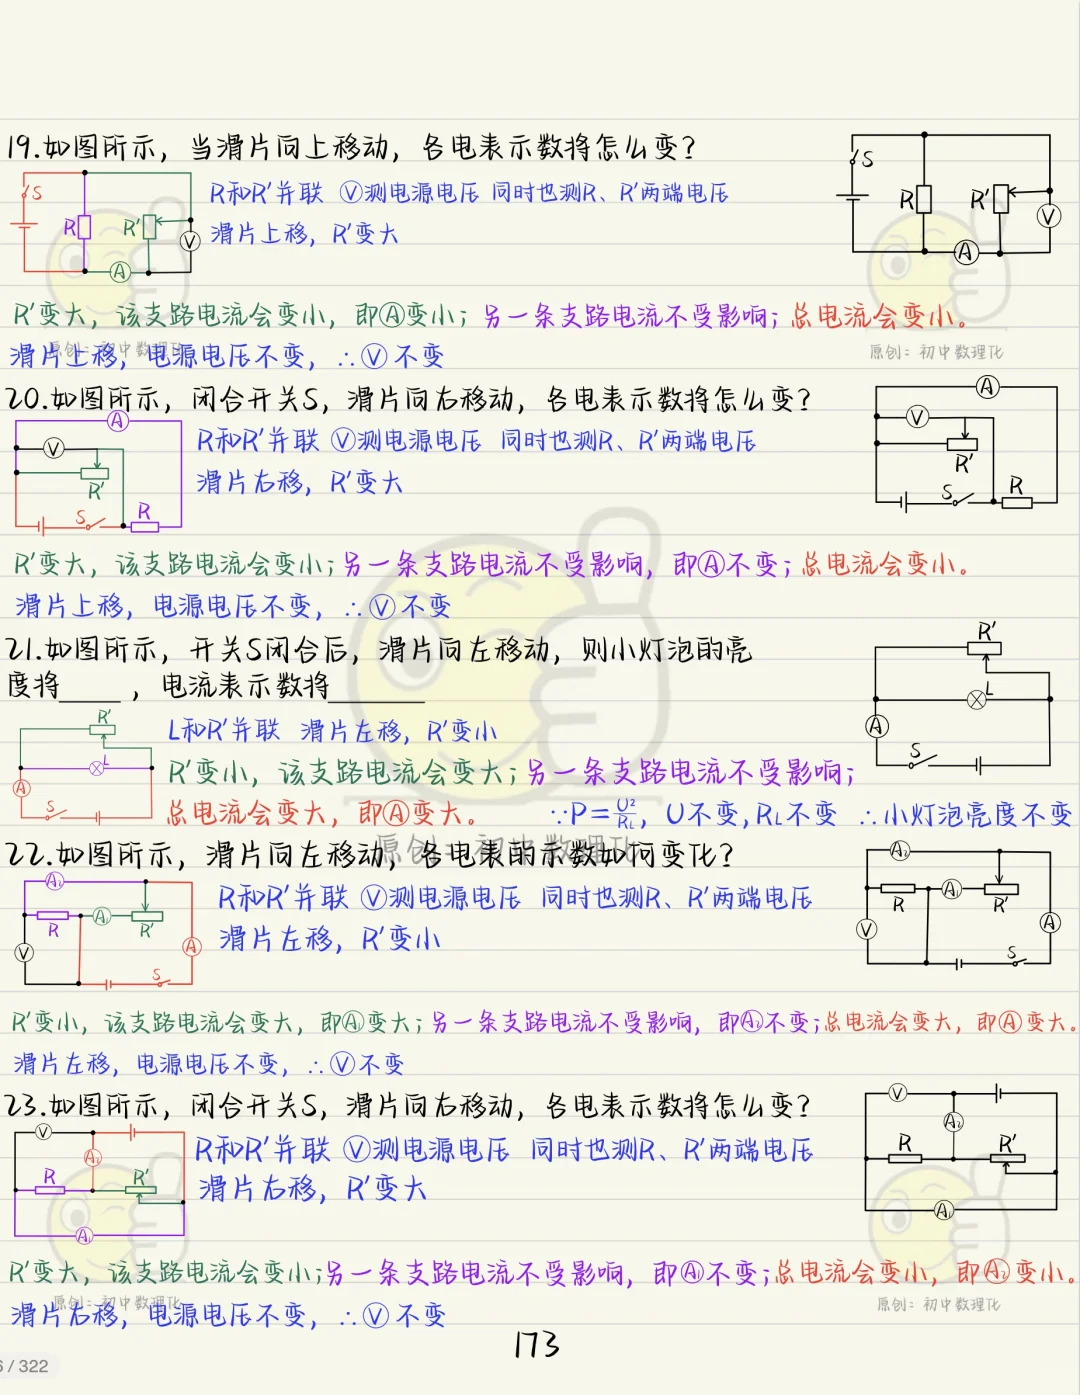 19.如图所示，当滑片向上移动，各电表示数将怎么变？
S
R和R′并联 Ⓥ测电源电压 同时也测R、R′两端电压
R R′ V A
滑片上移，R′变大
S R R′ V A
R′变大，该支路电流会变小，即Ⓐ变小；另一条支路电流不受影响；总电流会变小。
原创：初中数理化
滑片上移，电源电压不变，∴Ⓥ不变
原创：初中数理化
20.如图所示，闭合开关S，滑片向右移动，各电表示数将怎么变？
A V R′ S R
R和R′并联 Ⓥ测电源电压 同时也测R、R′两端电压
滑片右移，R′变大
A V R′ S R
R′变大，该支路电流会变小；另一条支路电流不受影响，即Ⓐ不变；总电流会变小。
滑片上移，电源电压不变，∴Ⓥ不变
21.如图所示，开关S闭合后，滑片向左移动，则小灯泡的亮
度将____，电流表示数将______
R′ L A S
L和R′并联 滑片左移，R′变小
R′ L A S
R′变小，该支路电流会变大；另一条支路电流不受影响；
总电流会变大，即Ⓐ变大。 ∵P=U²/RL，U不变，RL不变 ∴小灯泡亮度不变
原创：初中数理化
22.如图所示，滑片向左移动，各电表的示数如何变化？
A₂ R A₁ R′ V A S
R和R′并联 Ⓥ测电源电压 同时也测R、R′两端电压
滑片左移，R′变小
A₂ R A₁ R′ V A S
R′变小，该支路电流会变大，即A₁变大；另一条支路电流不受影响，即A₂不变；总电流会变大，即Ⓐ变大。
滑片左移，电源电压不变，∴Ⓥ不变
23.如图所示，闭合开关S，滑片向右移动，各电表示数将怎么变？
V A₂ R R′ A₁
R和R′并联 Ⓥ测电源电压 同时也测R、R′两端电压
滑片右移，R′变大
V A₂ R R′ A₁
R′变大，该支路电流会变小；另一条支路电流不受影响，即A₁不变；总电流会变小，即A₂变小。
原创：初中数理化
滑片右移，电源电压不变，∴Ⓥ不变
原创：初中数理化
173
6 / 322